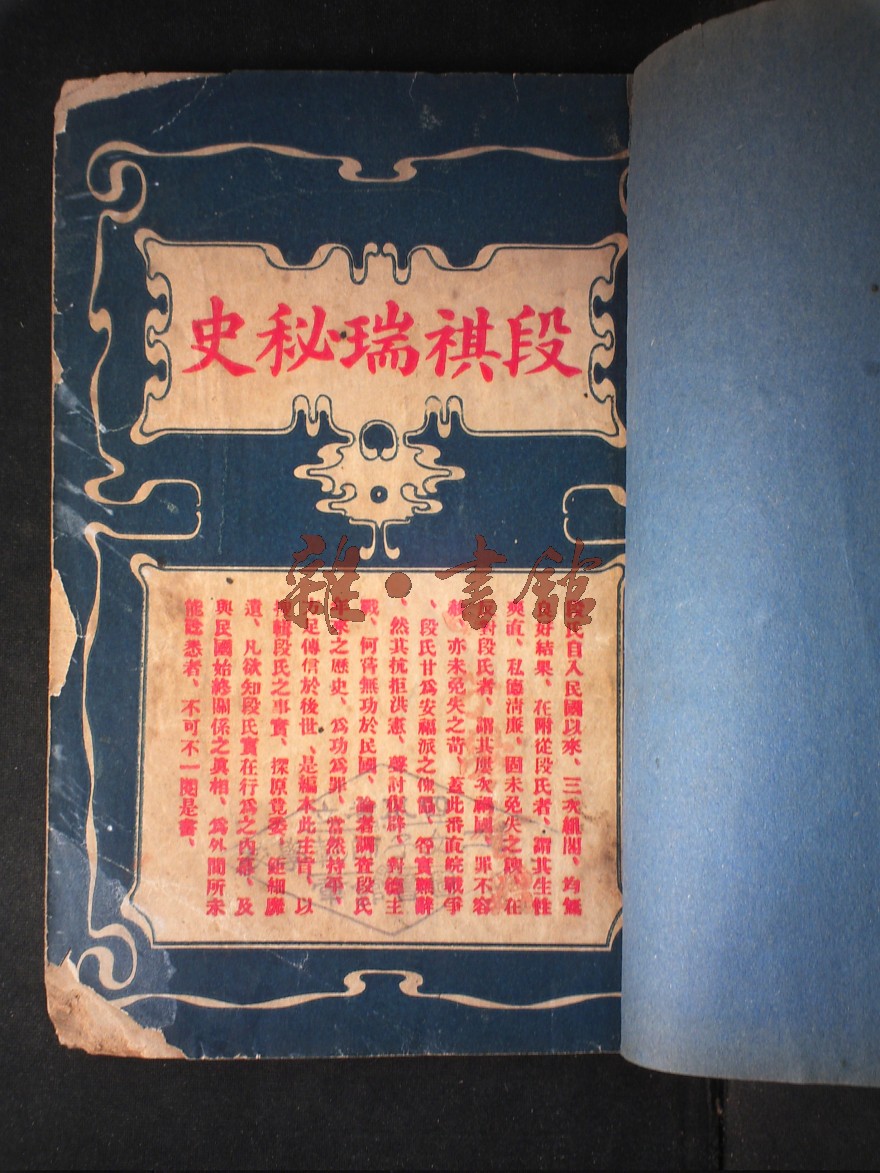 段祺瑞秘史
段氏自入民國以來、三次組閣、均無
良好結果、在附從段氏者、謂其生性
爽直、私德清廉、固未免失之諛、在
反對段氏者、謂其屢次禍國、罪不容
赦、亦未免失之苛、蓋此番直皖戰爭
、段氏甘爲安福派之傀儡、咎實難辭
、然其抗拒洪憲、聲討復辟、對德主
戰、何嘗無功於民國、論者調查段氏
年來之歷史、爲功爲罪、當然持平、
方足傳信於後世、是編本此主旨、以
搜輯段氏之事實、探原竟委、鉅細靡
遺、凡欲知段氏實在行爲之內幕、及
與民國始終關係之眞相、爲外間所未
能諗悉者、不可不一閱是書、
雜·書館